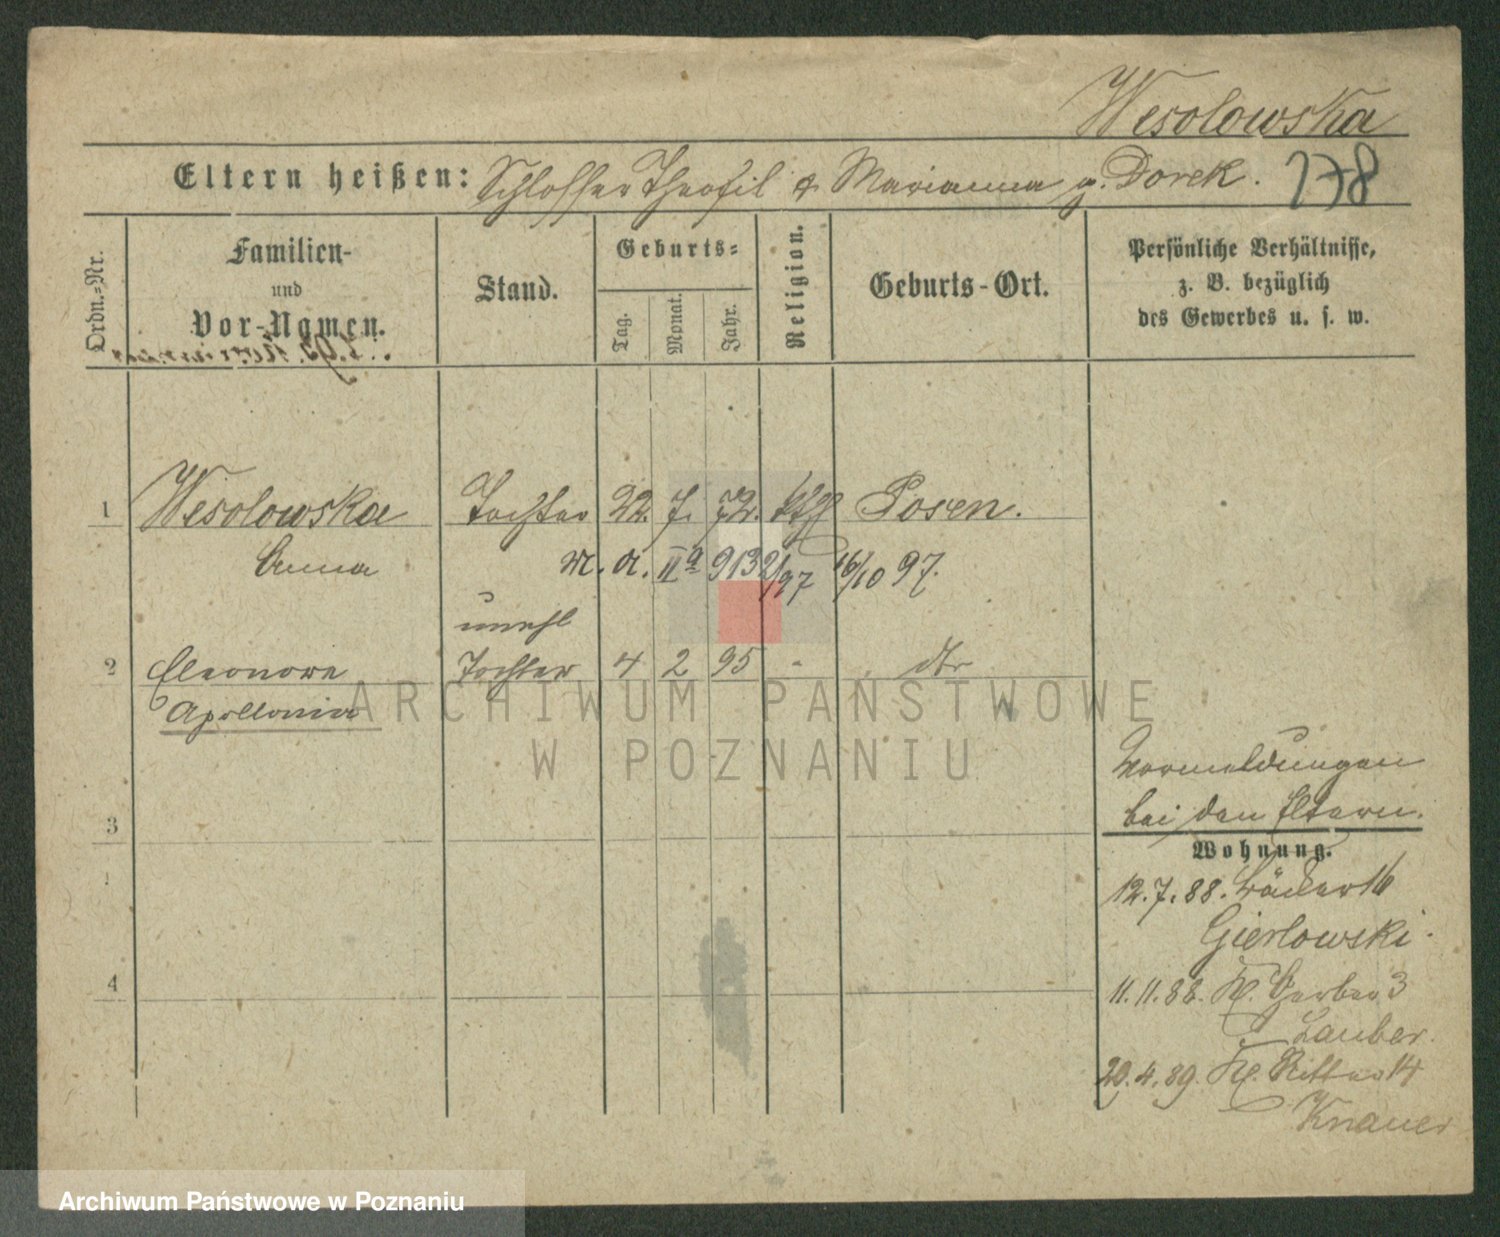 Wesolowska
Eltern heißen: Schlosser Theofil & Marianna g. Dorek. 178
Ordn.-Nr.
Familien-
und
Vor-Namen.
Stand.
Geburts-
Tag.
Monat.
Jahr.
Religion.
Geburts-Ort.
Persönliche Verhältnisse,
z. B. bezüglich
des Gewerbes u. s. w.
1 Wesolowska Tochter 22. 7. 72. kth Posen.
Anna
M. A. IIa 9132/97 16/10 97.
unehl
2 Eleonore Tochter 4 2 95 - dto
Apollonia
ARCHIWUM PAŃSTWOWE
W POZNANIU
3
4
Vormeldungen
bei den Eltern.
Wohnung.
12.7.88. Bäcker 16
Gierlowski.
11.11.88. Kl. Gerber 3
Lauber.
20.4.89. Kl. Ritter 14
Knauer
Archiwum Państwowe w Poznaniu